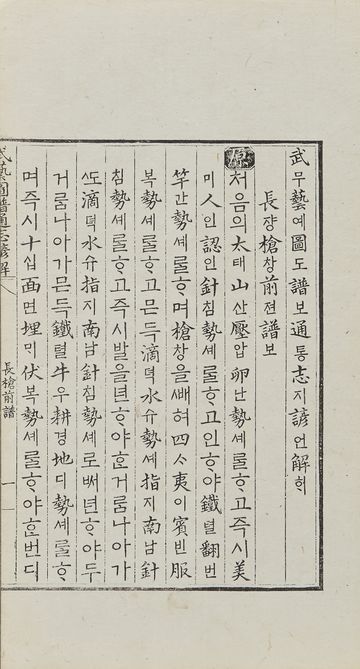 武무藝예圖도譜보通통志지諺언解ᄒᆡ
長쟝槍창前젼譜보
原 처음의太태山산壓압卵난勢셰ᄅᆞᆯᄒᆞ고즉시美
미人인認인針침勢셰ᄅᆞᆯᄒᆞ고인ᄒᆞ야鐵텰翻번
竿간勢셰ᄅᆞᆯᄒᆞ며槍창을ᄲᅢ혀四ᄉᆞ夷이賓빈服
복勢셰ᄅᆞᆯᄒᆞ고믄득滴뎍水슈勢셰指지南남針
침勢셰ᄅᆞᆯᄒᆞ고즉시발을년ᄒᆞ야ᄒᆞᆫ거룸나아가
ᄯᅩ滴뎍水슈指지南남針침勢셰로ᄡᅥ년ᄒᆞ야두
거룸나아가믄득鐵텰牛우耕경地디勢셰ᄅᆞᆯᄒᆞ
며즉시十십面면埋ᄆᆡ伏복勢셰ᄅᆞᆯᄒᆞ야ᄒᆞᆫ번디
武藝圖譜通志諺解
長槍前譜
一